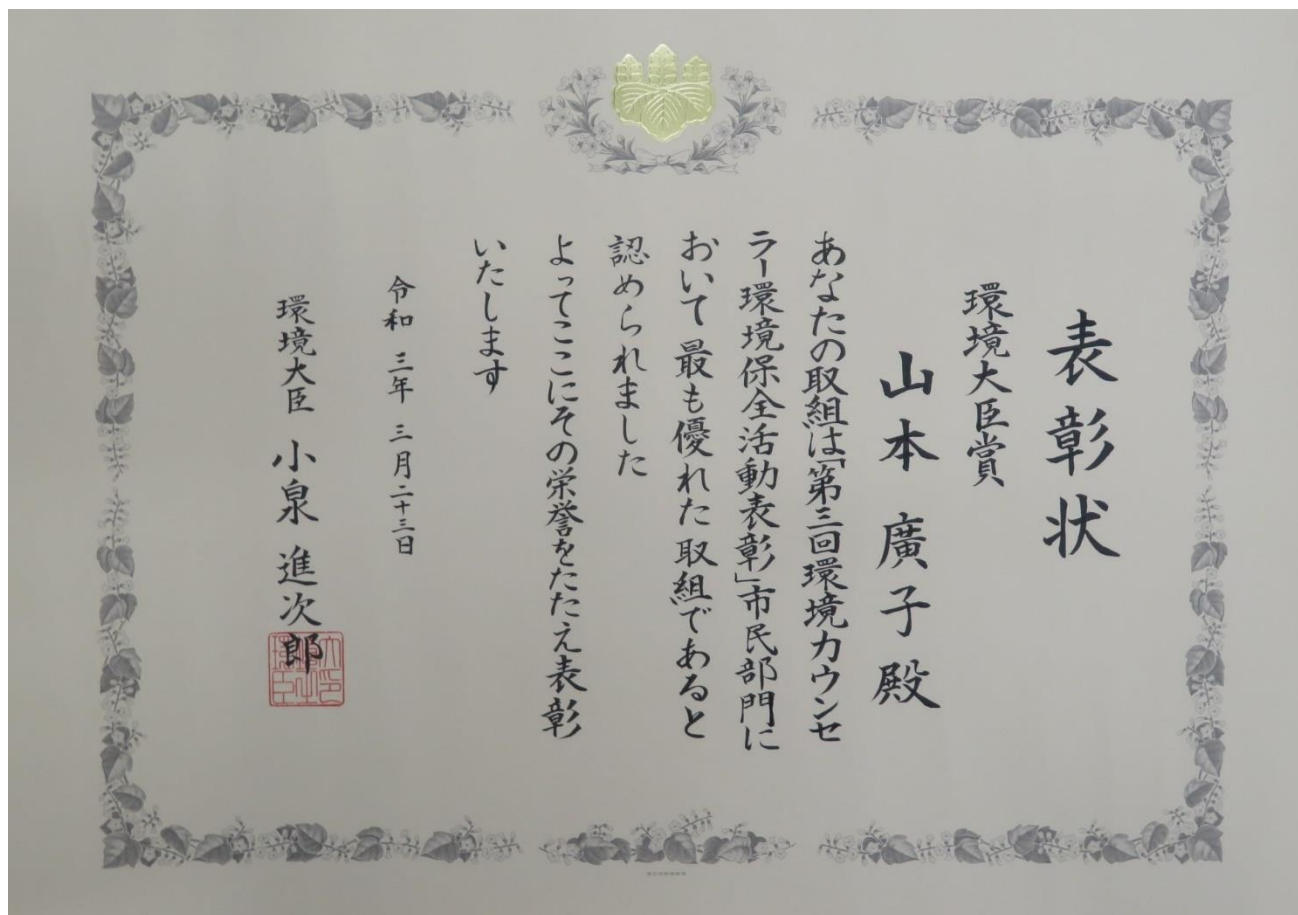 表彰状
環境大臣賞
山本 廣子 殿
あなたの取組は「第三回環境カウンセ
ラー環境保全活動表彰」市民部門に
おいて最も優れた取組であると
認められました
よってここにその栄誉をたたえ表彰
いたします
令和 三年 三月二十三日
環境大臣 小泉 進次郎